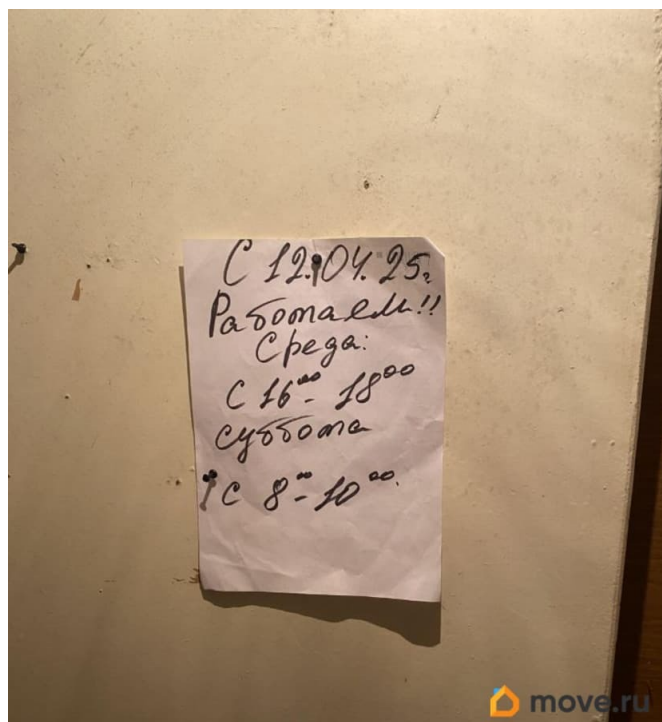 С 12.04.25г
Работаем!!
Среда:
С 16⁰⁰- 18⁰⁰
суббота
с 8⁰⁰- 10⁰⁰.
move.ru